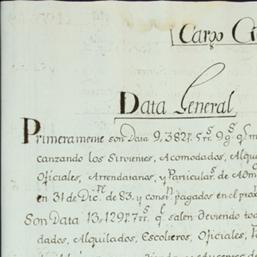 Cargo G
Data General
Primeramente son Data 9,3821.5rs. 9gs. q
canzando los Sirvientes, Acomodados, Alqu
Oficiales, Arrendatarias, y Particulars. de Adm
en 31 de Dicre. de 83. y constn. pagados en el prox
Son Data 13,1291.7rs. q. salen deviendo tod
dados, Alquilados, Escoleros, Oficiales,